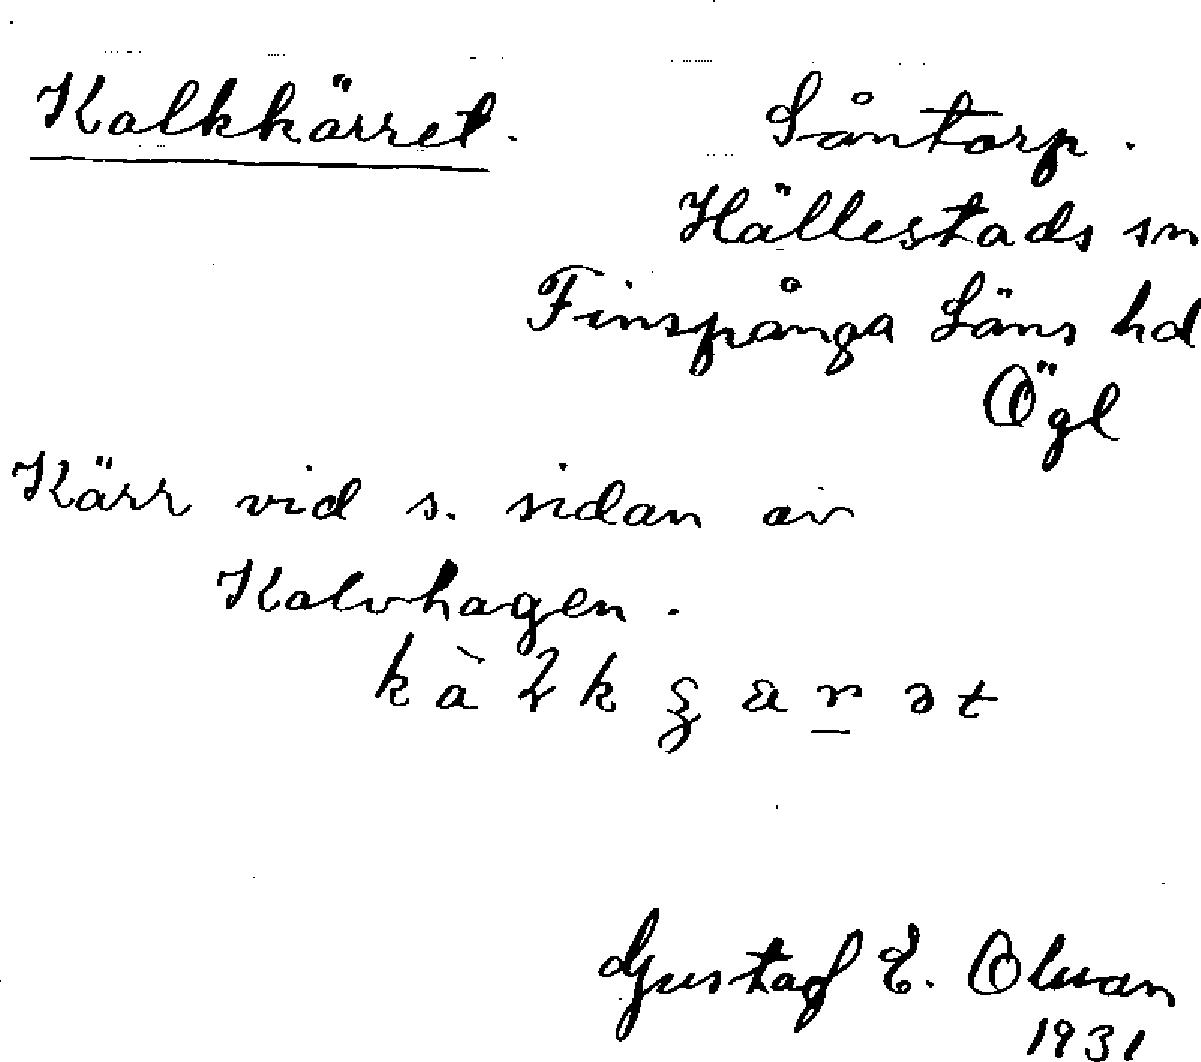 Kalkkärret. Låntorp.
Hällestads sn
Finspånga Läns hd
Ögl
Kärr vid s. sidan av
Kalvhagen.
Gustaf E. Olsson
1931